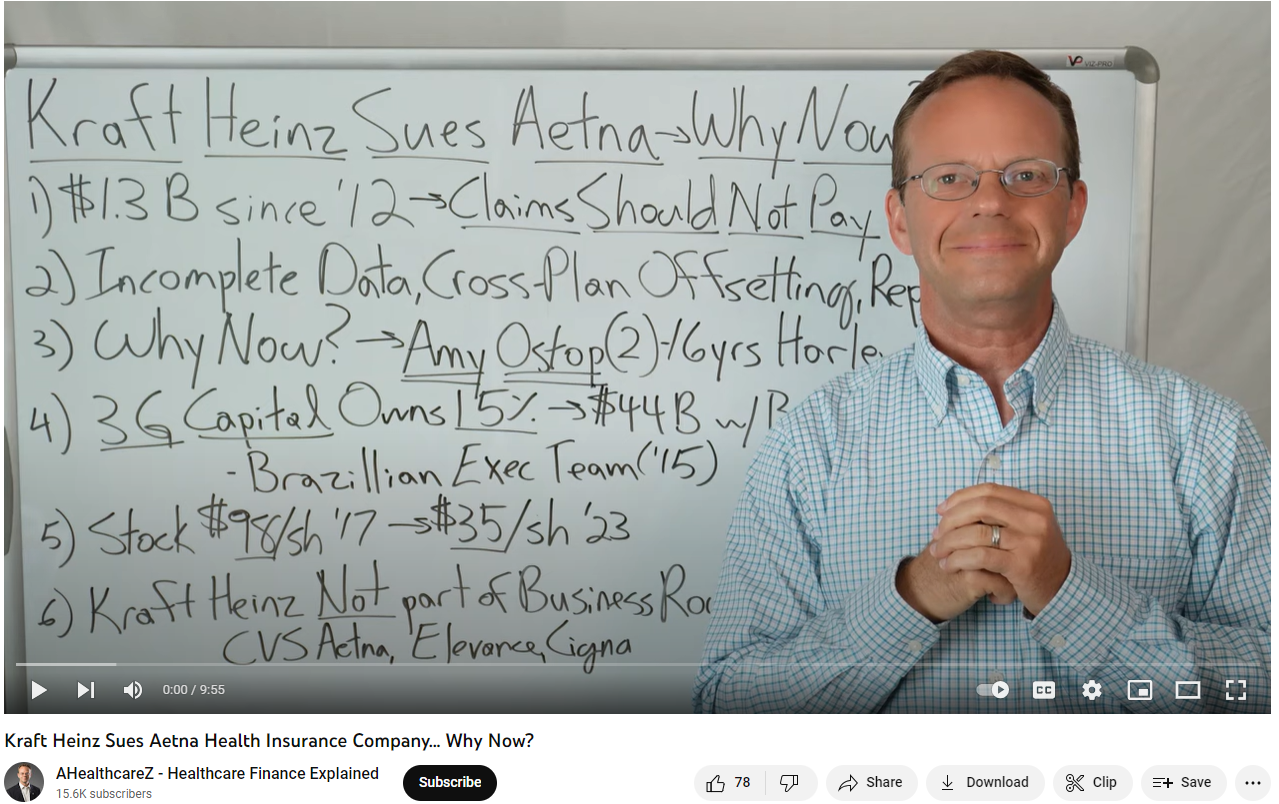 VP VIZ-PRO
Kraft Heinz Sues Aetna→Why Now
1) $1.3 B since '12→Claims Should Not Pay
2) Incomplete Data, Cross-Plan Offsetting, Rep
3) Why Now? →Amy Ostop(2)-16yrs Harle
4) 3G Capital Owns 15% →$44B w/
- Brazillian Exec Team('15)
5) Stock $98/sh '17 →$35/sh '23
6) Kraft Heinz Not part of Business Rou
CVS Aetna, Elevance, Cigna
0:00 / 9:55
CC
Kraft Heinz Sues Aetna Health Insurance Company... Why Now?
AHealthcareZ - Healthcare Finance Explained
15.6K subscribers
Subscribe
78
Share
Download
Clip
Save